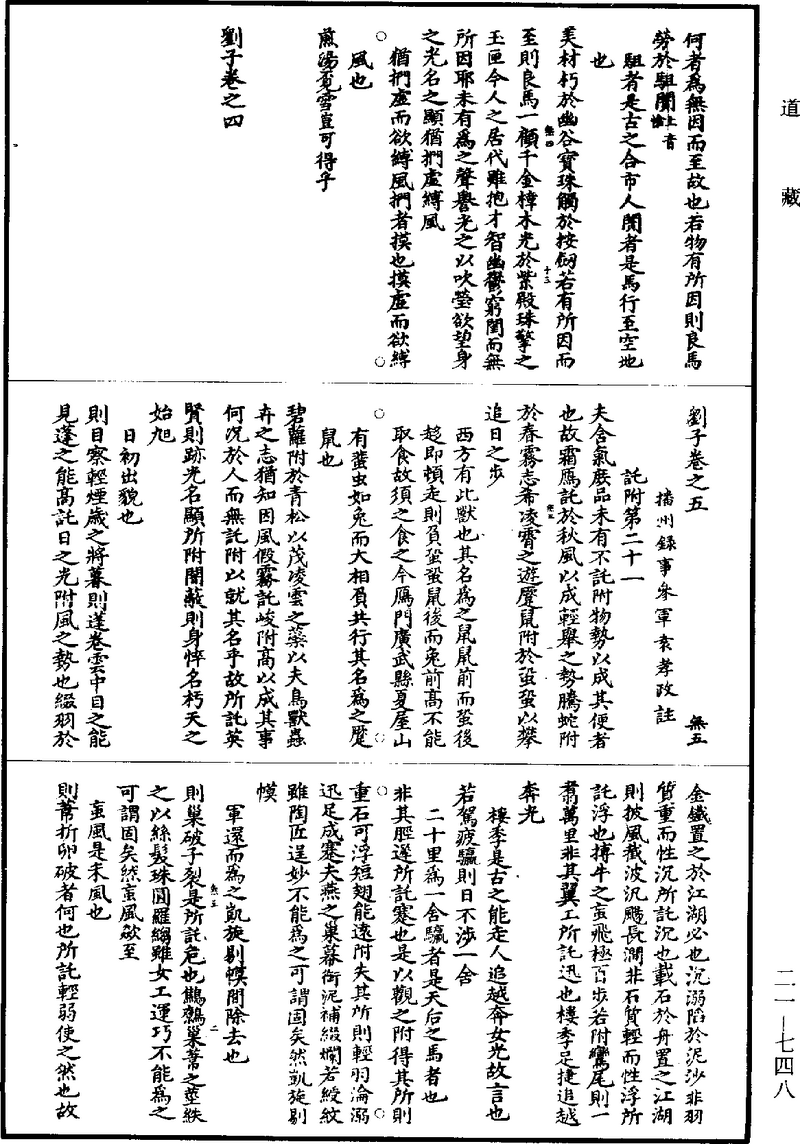 道藏
何者為無因而至故也若物有所因則良馬
勞於駔闤上音
駔者是古之合市人闤者是馬行至空地
也
美材朽於幽谷寶珠觸於按劒若有所因而
至則良馬一顧千金樟木光於紫殿珠擎之
玉匣今人之居代雖抱才智幽鬱窮閨而無
所因耶未有為之聲譽光之以吹瑩欲望身
之光名之顯猶捫虛縛風
猶捫虛而欲縛風捫者摸也摸虛而欲縛
風也
煎湯覓雪豈可得乎
劉子卷之四
無四
十三
劉子卷之五
無五
播州錄事參軍袁孝政註
託附第二十一
夫含氣庶品未有不託附物勢以成其便者
也故霜鴈託於秋風以成輕舉之勢騰蛇附
於春霧志希凌霄之遊蹷鼠附於蛩蛩以攀
追日之步
西方有此獸也其名為之鼠鼠前而蛩後
趍即頓走則負蛩蛩鼠後而兔前高不能
取食故須之食之今鴈門廣武縣夏屋山
有蛩虫如兔而大相負共行其名為之蹷
鼠也
碧蘿附於青松以茂凌雲之蘂以夫鳥獸蟲
卉之志猶知因風假霧託峻附高以成其事
何況於人而無託附以就其名乎故所託英
賢則跡光名顯所附闇蔽則身悴名朽天之
始旭
日初出貌也
則目察輕煙歲之將暮則蓬卷雲中目之能
見蓬之能高託日之光附風之勢也綴羽於
金鐵置之於江湖必也沉溺陷於泥沙非羽
質重而性沉所託沉也載石於舟置之江湖
則披風截波沉颺長瀾非石質輕而性浮所
託浮也搏牛之蝱飛極百步若附鸞尾則一
翥萬里非其翼工所託迅也樓季足捷追越
奔光
樓季是古之能走人追越奔女光故言也
若駕疲驢則日不涉一舍
二十里為一舍驢者是天后之馬者也
非其脛遲所託蹇也是以觀之附得其所則
重石可浮短翅能遠附失其所則輕羽淪溺
迅足成蹇夫燕之巢幕銜泥補綴爛若綬紋
雖陶匠逞妙不能為之可謂固矣然凱旋剔
幙
軍還而為之凱旋剔幙間除去也
則巢破子裂是所託危也鷦鷯巢葦之莖紩
之以絲髮珠圓羅縐雖女工運巧不能為之
可謂固矣然蝱風欻至
蝱風是末風也
則葦折卵破者何也所託輕弱使之然也故
二一—七四八